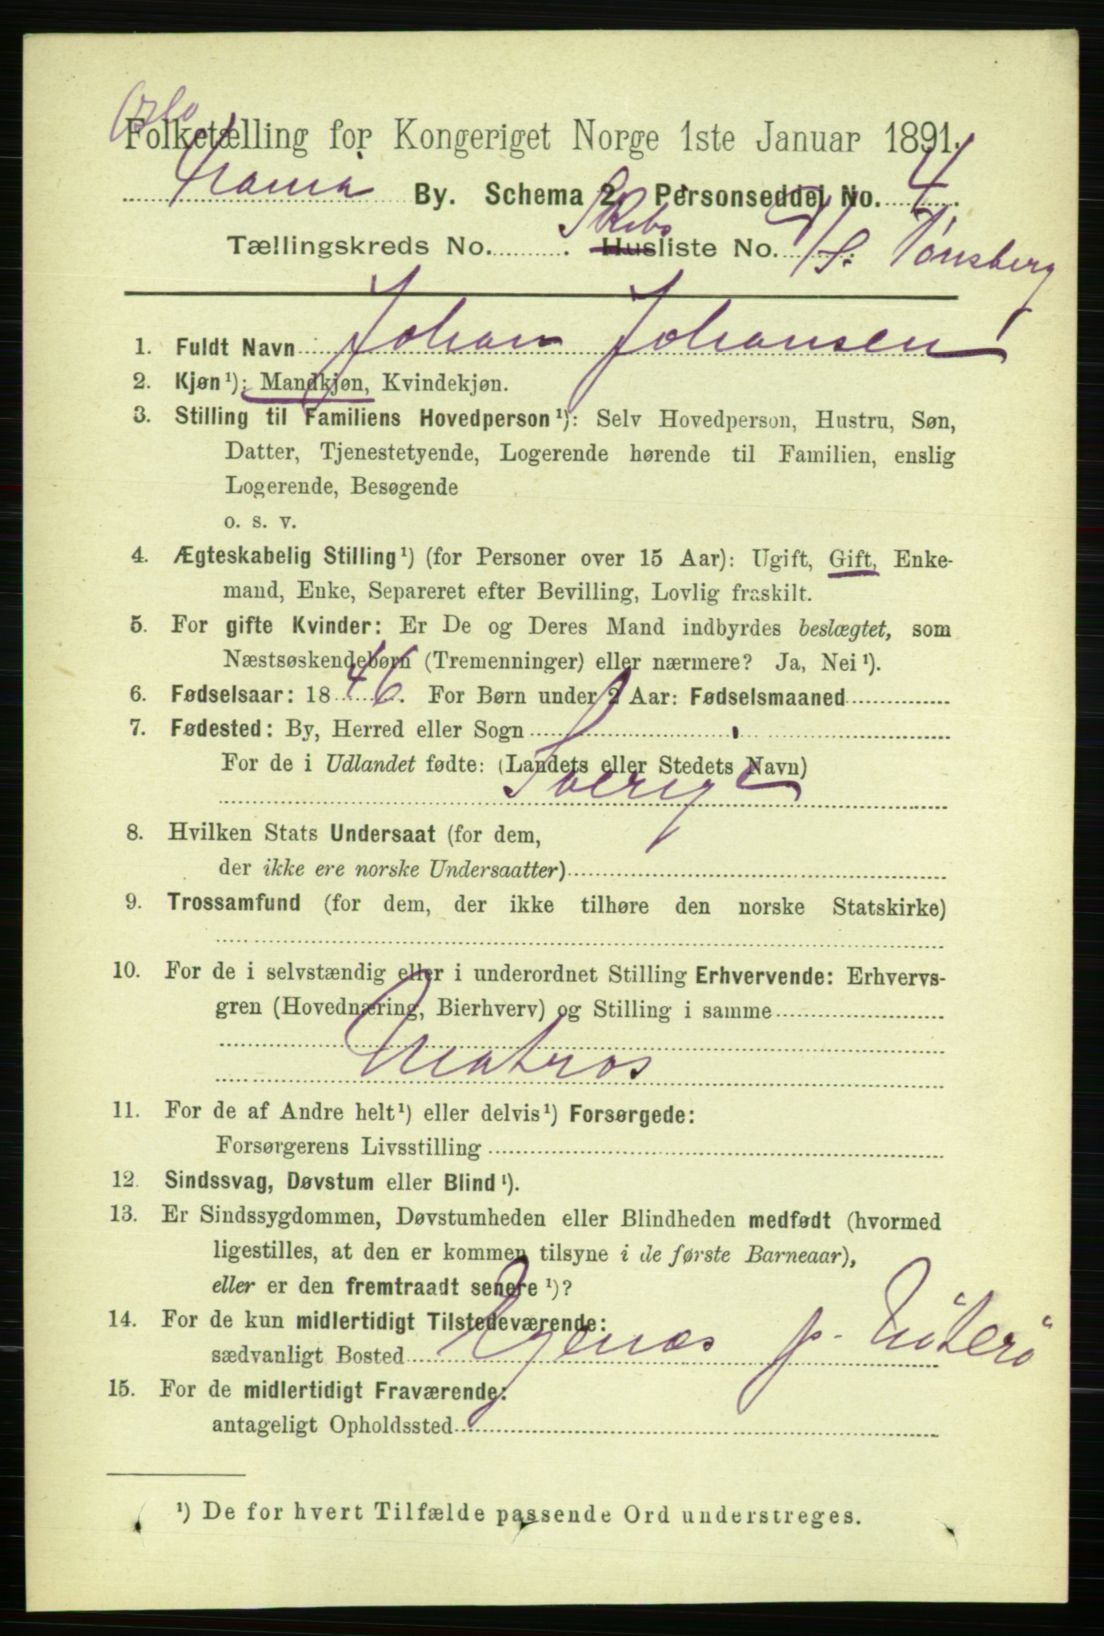 Folketælling for Kongeriget Norge 1ste Januar 1891.
By. Schema 2. Personseddel No. 4.
Tællingskreds No. . Skibs Husliste No. /S. Tønsberg
1. Fuldt Navn Johan Johansen
2. Kjøn¹): Mandkjøn, Kvindekjøn.
3. Stilling til Familiens Hovedperson¹): Selv Hovedperson, Hustru, Søn,
Datter, Tjenestetyende, Logerende hørende til Familien, enslig
Logerende, Besøgende
o. s. v.
4. Ægteskabelig Stilling¹) (for Personer over 15 Aar): Ugift, Gift, Enke-
mand, Enke, Separeret efter Bevilling, Lovlig fraskilt.
5. For gifte Kvinder: Er De og Deres Mand indbyrdes beslægtet, som
Næstsøskendebørn (Tremenninger) eller nærmere? Ja, Nei¹).
6. Fødselsaar: 1846. For Børn under 2 Aar: Fødselsmaaned
7. Fødested: By, Herred eller Sogn
For de i Udlandet fødte: (Landets eller Stedets Navn)
Sverige
8. Hvilken Stats Undersaat (for dem,
der ikke ere norske Undersaatter)
9. Trossamfund (for dem, der ikke tilhøre den norske Statskirke)
10. For de i selvstændig eller i underordnet Stilling Erhvervende: Erhvervs-
gren (Hovednæring, Bierhverv) og Stilling i samme
Matros
11. For de af Andre helt¹) eller delvis¹) Forsørgede:
Forsørgerens Livsstilling
12. Sindssvag, Døvstum eller Blind¹).
13. Er Sindssygdommen, Døvstumheden eller Blindheden medfødt (hvormed
ligestilles, at den er kommen tilsyne i de første Barneaar),
eller er den fremtraadt senere¹)?
14. For de kun midlertidigt Tilstedeværende:
sædvanligt Bosted Ejenæs p. Nöterö
15. For de midlertidigt Fraværende:
antageligt Opholdssted
¹) De for hvert Tilfælde passende Ord understreges.